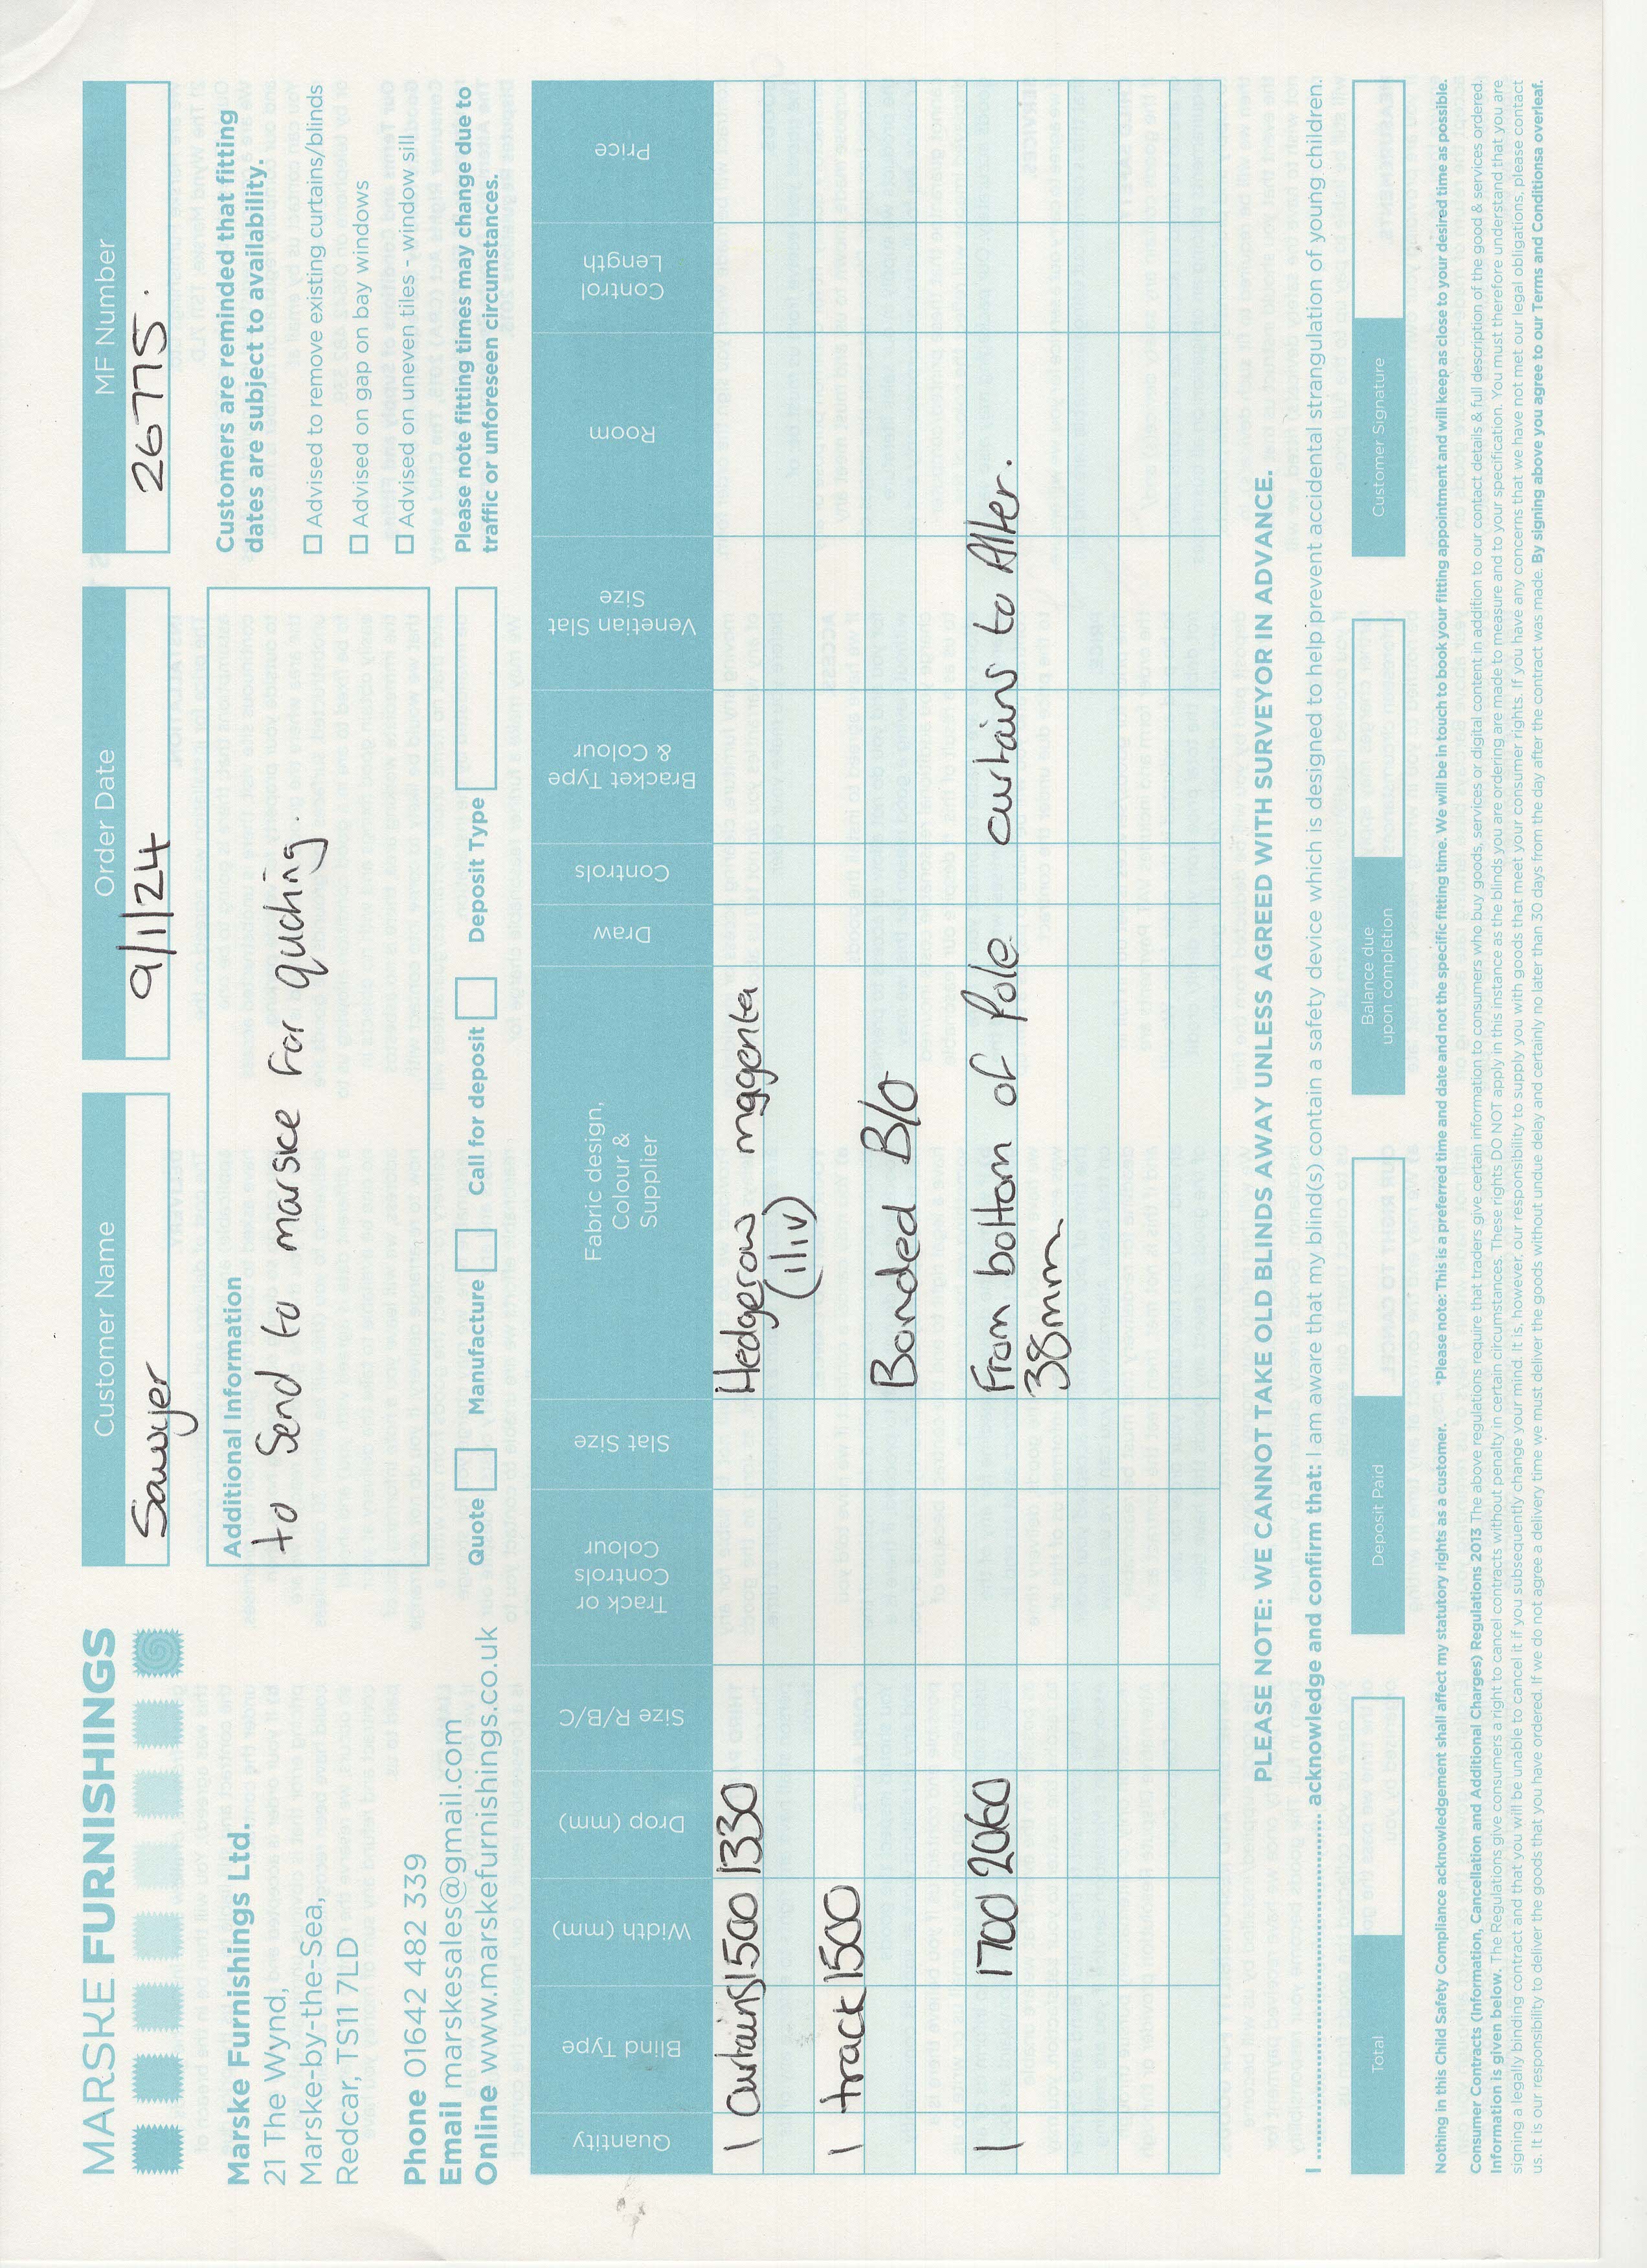 MARSKE FURNISHINGS
Marske Furnishings Ltd.
21 The Wynd,
Marske-by-the-Sea,
Redcar, TS11 7LD
Phone 01642 482 339
Email marskesales@gmail.com
Online www.marskefurnishings.co.uk
Customer Name
Sawyer
Order Date
9/1/24
MF Number
26775.
Additional Information
to Send to marske for quoting.
Quote
Manufacture
Call for deposit
Deposit Type
Customers are reminded that fitting
dates are subject to availability.
Advised to remove existing curtains/blinds
Advised on gap on bay windows
Advised on uneven tiles - window sill
Please note fitting times may change due to
traffic or unforeseen circumstances.
Quantity
Blind Type
Width (mm)
Drop (mm)
Size R/B/C
Track or
Controls
Colour
Slat Size
Fabric design,
Colour &
Supplier
Draw
Controls
Bracket Type
& Colour
Venetian Slat
Size
Room
Control
Length
Price
1 Curtains 1500 1330 Hedgerow magenta
(iliv)
1 track 1500
Bonded B/O
1 1700 2060 From bottom of Pole. curtains to Alter.
38mm
PLEASE NOTE: WE CANNOT TAKE OLD BLINDS AWAY UNLESS AGREED WITH SURVEYOR IN ADVANCE.
I .............................................. acknowledge and confirm that: I am aware that my blind(s) contain a safety device which is designed to help prevent accidental strangulation of young children.
Total
Deposit Paid
Balance due
upon completion
Customer Signature
Nothing in this Child Safety Compliance acknowledgement shall affect my statutory rights as a customer. *Please note: This is a preferred time and date and not the specific fitting time. We will be in touch to book your fitting appointment and will keep as close to your desired time as possible.
Consumer Contracts (Information, Cancellation and Additional Charges) Regulations 2013 The above regulations require that traders give certain information to consumers who buy goods, services or digital content in addition to our contact details & full description of the good & services ordered.
Information is given below. The Regulations give consumers a right to cancel contracts without penalty in certain circumstances. These rights DO NOT apply in this instance as the blinds you are ordering are made to measure and to your specification. You must therefore understand that you are
signing a legally binding contract and that you will be unable to cancel it if you subsequently change your mind. It is, however, our responsibility to supply you with goods that meet your consumer rights. If you have any concerns that we have not met our legal obligations, please contact
us. It is our responsibility to deliver the goods that you have ordered. If we do not agree a delivery time we must deliver the goods without undue delay and certainly no later than 30 days from the day after the contract was made. By signing above you agree to our Terms and Conditionsa overleaf.